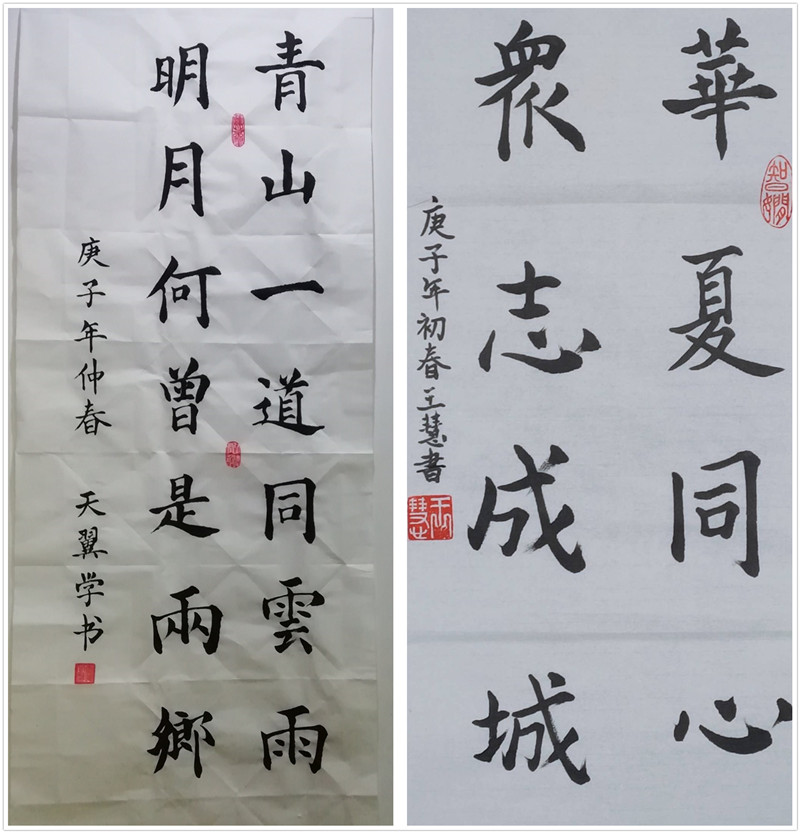 青山一道同雲雨
明月何曾是兩鄉
庚子年仲春 天翼学书
華夏同心
衆志成城
庚子年初春王慧書
王慧